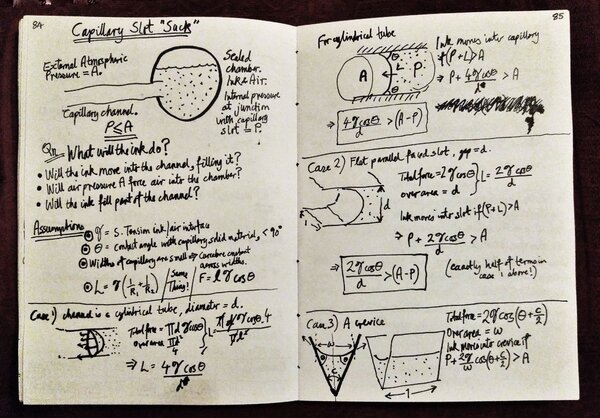 84
Capillary Slot "Suck"
External Atmospheric
Pressure = A.
Sealed
chamber.
Ink & Air.
Internal pressure
at junction
with capillary
slot = P.
Capillary channel.
P ≤ A
Qn. What will the ink do?
• Will the ink move into the channel, filling it?
• Will air pressure A force air into the chamber?
• Will the ink fill part of the channel?
Assumptions
γ = S. Tension ink/air interface
θ = contact angle with capillary solid material, < 90°
Widths of capillary are small ⇒ Curvature constant
across widths.
L = γ(1/R₁ + 1/R₂) / Same Thing! / F = lγcosθ
Case 1) channel is a cylindrical tube, diameter = d.
Total force = πdγcosθ
over area πd²/4
L = πdγcosθ.4/πd²
⇒ L = 4γcosθ/d
85
For cylindrical tube
A
θ
L
P
θ
Ink moves into capillary
if (P+L) > A
⇒ P + 4γcosθ/d > A
⇒ 4γcosθ/d > (A-P)
Case 2) Flat parallel faced slot, gap = d.
Total force = 2γcosθ
over area = d
L = 2γcosθ/d
d
Ink moves into slot if (P+L) > A
⇒ P + 2γcosθ/d > A
⇒ 2γcosθ/d > (A-P)
(exactly half of terms in
case 1 above!)
Case 3) A crevice
w
c
l
Total force = 2γcos(θ + c/2)
Over area = w
Ink moves into crevice if
P + 2γ/w cos(θ + c/2) > A